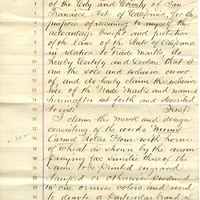 of the City and County of San
Francisco State of California for the
purpose of securing to myself the
advantage benefit and protection
of the Laws of the State of California
in relation to Trade Marks do
hereby Certify and Declare that I
am the sole and exclusive owner
of and do hereby claim the exclusive
use of the Trade Marks and names
hereinafter set forth and described
to wit: First
I claim the mark and design
consisting of the words
Flour with
of wheat as shown by the accom
panying fac similie thereof the
same to be printed engraved
stamped or otherwise produced
in one or more colors and used
to denote a Particular Brand of